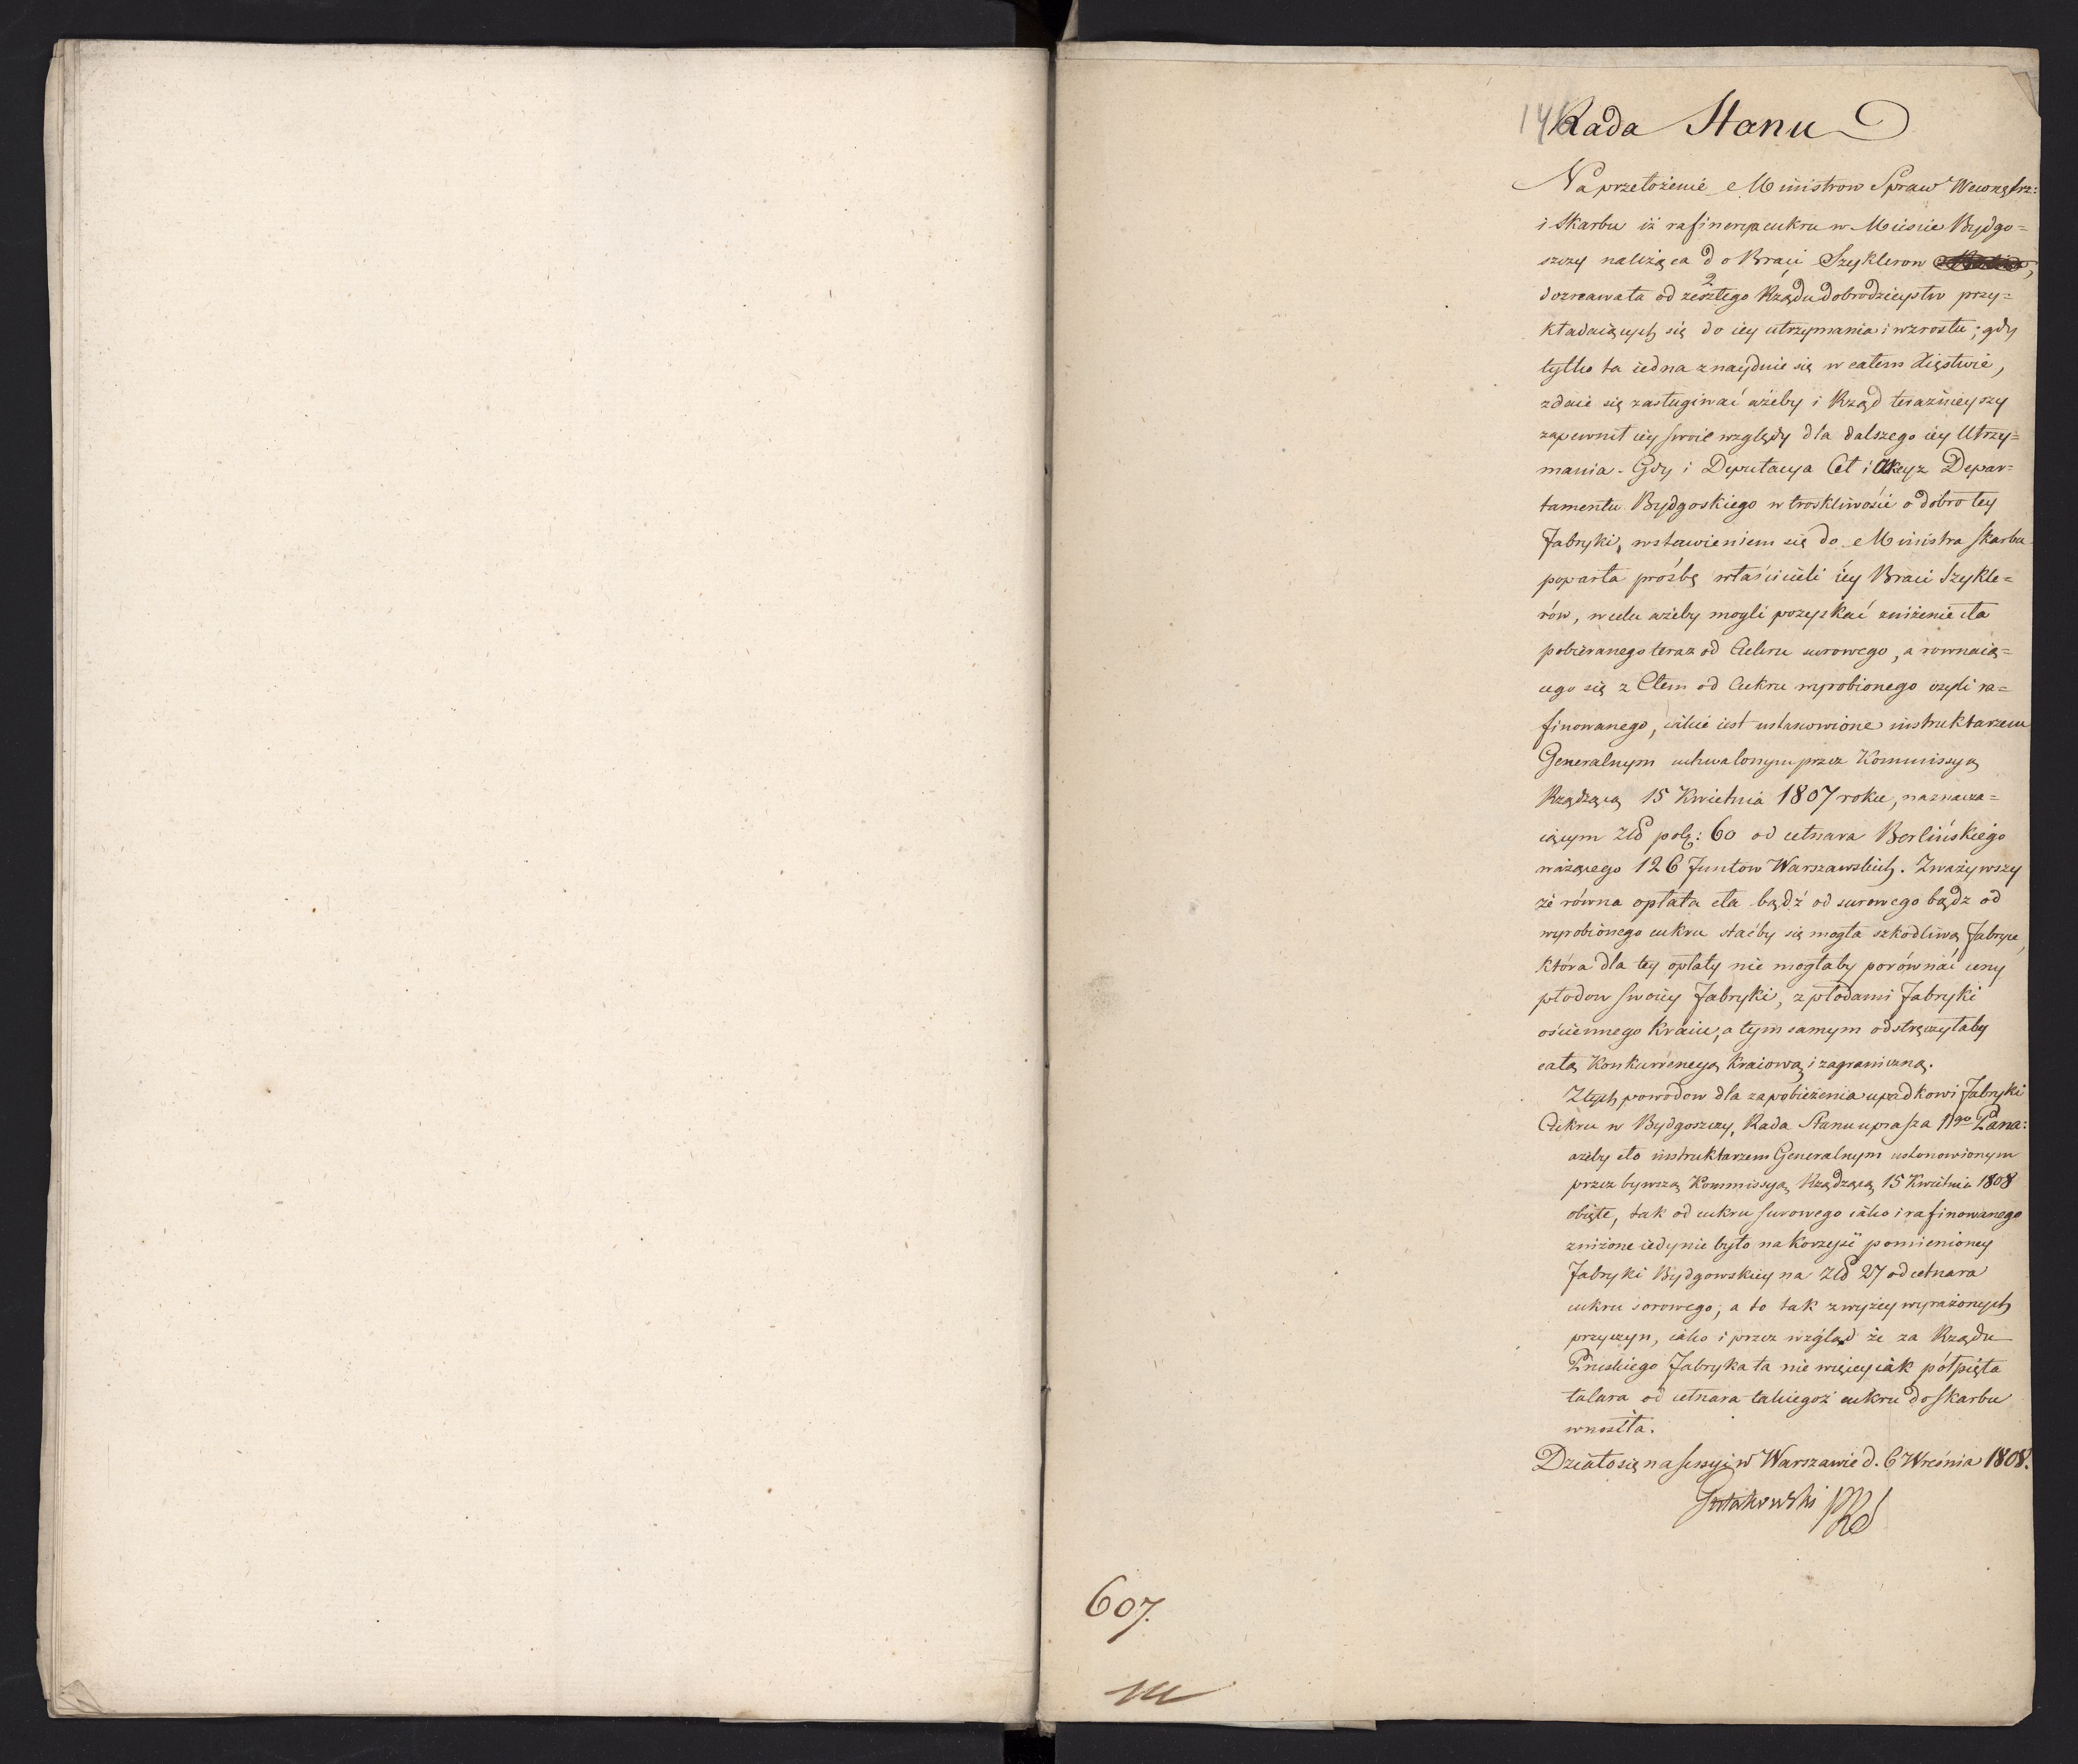 146
Rada Stanu
Na przełożenie Ministrow Spraw Wewnętrz:
i Skarbu iż rafinerya cukru w Miescie Bydgo=
szczy nalеżąca do Braci Szyklerow
doznawała od zeszłego Rządu dobrodzieystw przy=
kładaiących się do iey utrzymania i wzrostu; gdy
tylko ta iedna znayduie się w całem Xięstwie,
zdaie się zasługiwać ażeby i Rząd teraźnieyszy
zapewnił iey swoie względy dla dalszego iey Utrzy=
mania. Gdy i Deputacya Ceł i Akcyz Depar=
tamentu Bydgoskiego w troskliwości o dobro tey
Fabryki, wstawieniem się do Ministra Skarbu
poparła prośbę właścicieli iey Braci Szykle=
rów, w celu ażeby mogli pozyskać zniżenie cła
pobieranego teraz od Cukru surowego, a rownaią=
cego się z Cłem od Cukru wyrobionego czyli ra=
finowanego, iakie iest ustanowione instruktarzem
Generalnym uchwalonym przez Kommissyą
Rządzącą 15 Kwietnia 1807 roku, naznacza=
iącym Złł polʒ: 60 od cetnara Berlińskiego
ważącego 126 Funtow Warszawskich. Zważywszy
że równa opłata cła bądź od surowego bądz od
wyrobionego cukru stać by się mogła szkodliwą Fabryce,
która dla tey opłaty nie mogłaby porównać ceny
płodow swoiey Fabryki, z płodami Fabryki
ościennego Kraiu, a tym samym odstręczyłaby
całą Konkurrencyą Kraiową i zagraniczną.
Z tych powodow dla zapobieżenia upadkowi Fabryki
Cukru w Bydgoszczy, Rada Stanu uprasza Nго Pana:
ażeby cło instruktarzem Generalnym ustonowionym
przez bywszą Kommissyą Rządzącą 15 Kwietnia 1808
obięte, tak od cukru surowego iako i rafinowanego
zniżone iedynie było na Korzyść pomienioney
Fabryki Bydgowskiey na Złł 27 od cetnara
cukru sorowego; a to tak z wyżey wyrażonych
przyczyn, iako i przez wzgląd że za Rządu
Pruskiego Fabryka ta nie więcey iak półpięta
talara od cetnara takiegoż cukru do Skarbu
wnosiła.
Działo się na sessyi w Warszawie d. 6 Września 1808.
607.